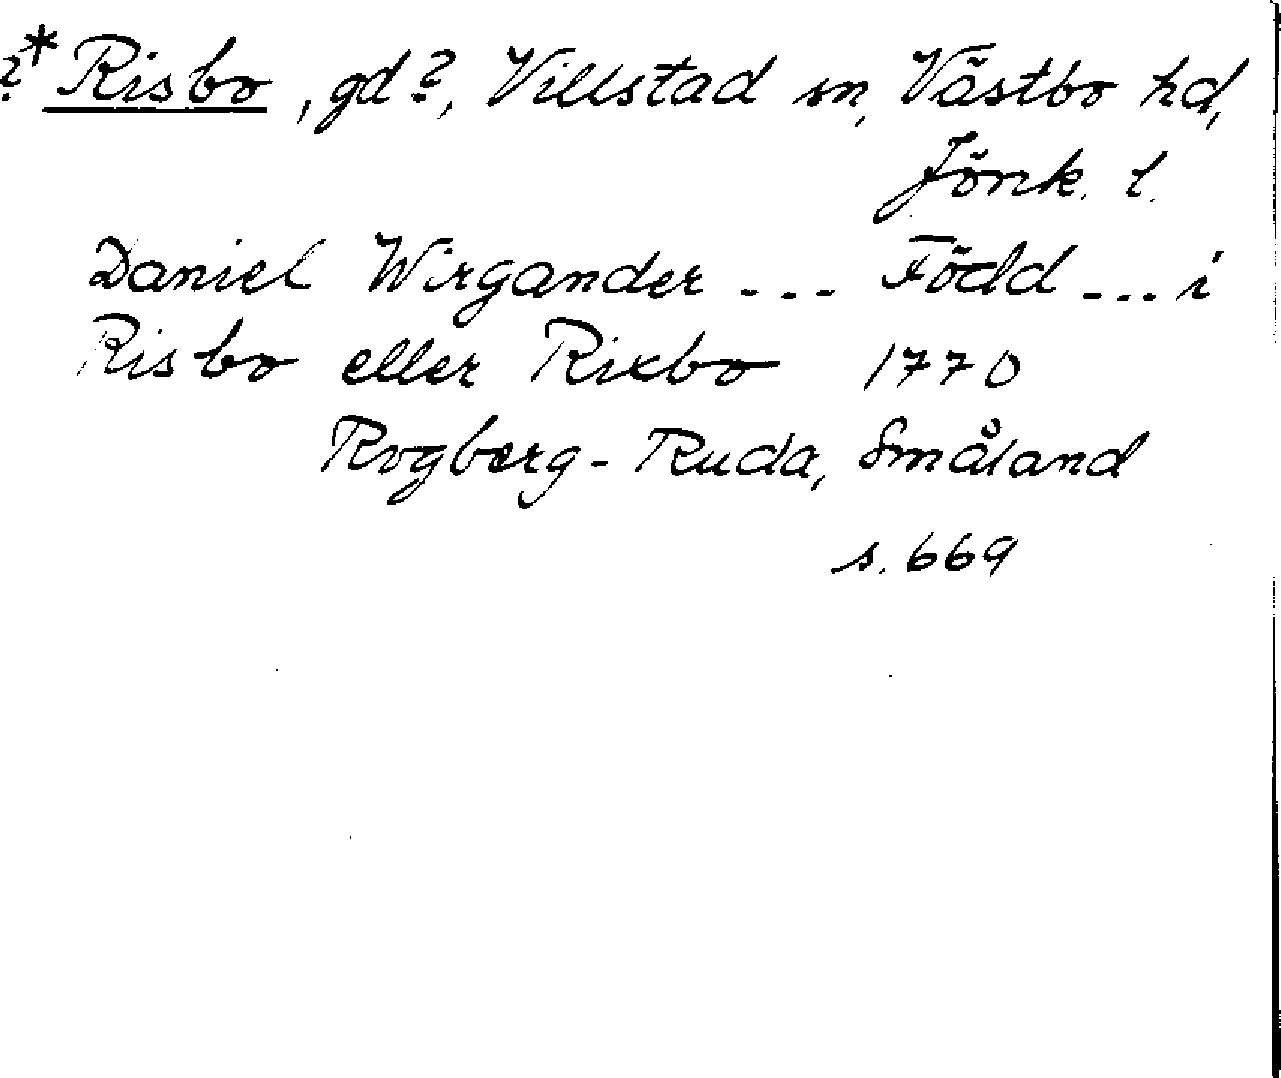 ?* Risbo, gd?, Villstad sn, Västbo hd,
Jönk. l.
Daniel Wirgander --- Född --- i
Risbo eller Rixbo 1770
Rogberg - Ruda, Småland
s. 669